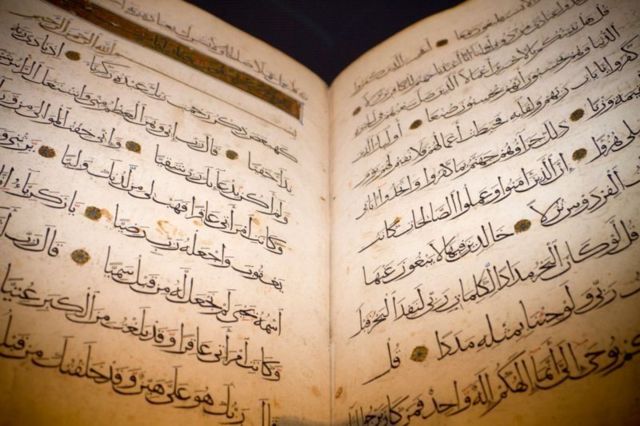 الدنيا وهم يحسبون أنهم يحسنون صنعا أولئك الذين
كفروا بآيات ربهم ولقائه فحبطت أعمالهم فلا نقيم لهم يوم
وزنا ذلك جزاؤهم جهنم بما كفروا واتخذوا آياتي
هزوا إن الذين آمنوا وعملوا الصالحات كانت
الفردوس نزلا خالدين فيها لا يبغون عنها
قل لو كان البحر مدادا لكلمات ربي لنفد البحر قبل
ربي ولو جئنا بمثله مددا قل
يوحى إلي أنما إلهكم إله واحد فمن كان يرجو
بسم الله الرحمن الرحيم
كهيعص ذكر رحمت ربك عبده زكريا إذ نادى ربه
نداء خفيا قال رب إني وهن العظم مني واشتعل الرأس
ولم أكن بدعائك رب شقيا وإني خفت الموالي من
وكانت امرأتي عاقرا فهب لي من لدنك وليا يرثني
يعقوب واجعله رب رضيا يا زكريا إنا
اسمه يحيى لم نجعل له من قبل سميا قال رب أنى
وكانت امرأتي عاقرا وقد بلغت من الكبر عتيا
قال ربك هو علي هين وقد خلقتك من قبل